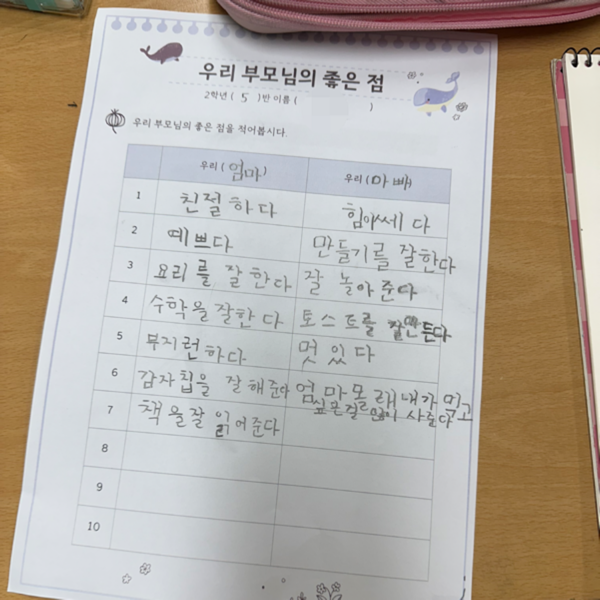 우리 부모님의 좋은 점
2학년 ( 5 )반 이름 ( )
우리 부모님의 좋은 점을 적어봅시다.
우리 (엄마) 우리 (아빠)
1 친절하다 힘이쎄다
2 예쁘다 만들기를 잘한다
3 요리를 잘한다 잘 놀아준다
4 수학을잘한다 토스트를 잘만든다
5 부지런하다 멋있다
6 감자칩을 잘해준다 엄마몰래내가 먹고
싶은걸 많이 사준다
7 책을잘 읽어준다
8
9
10